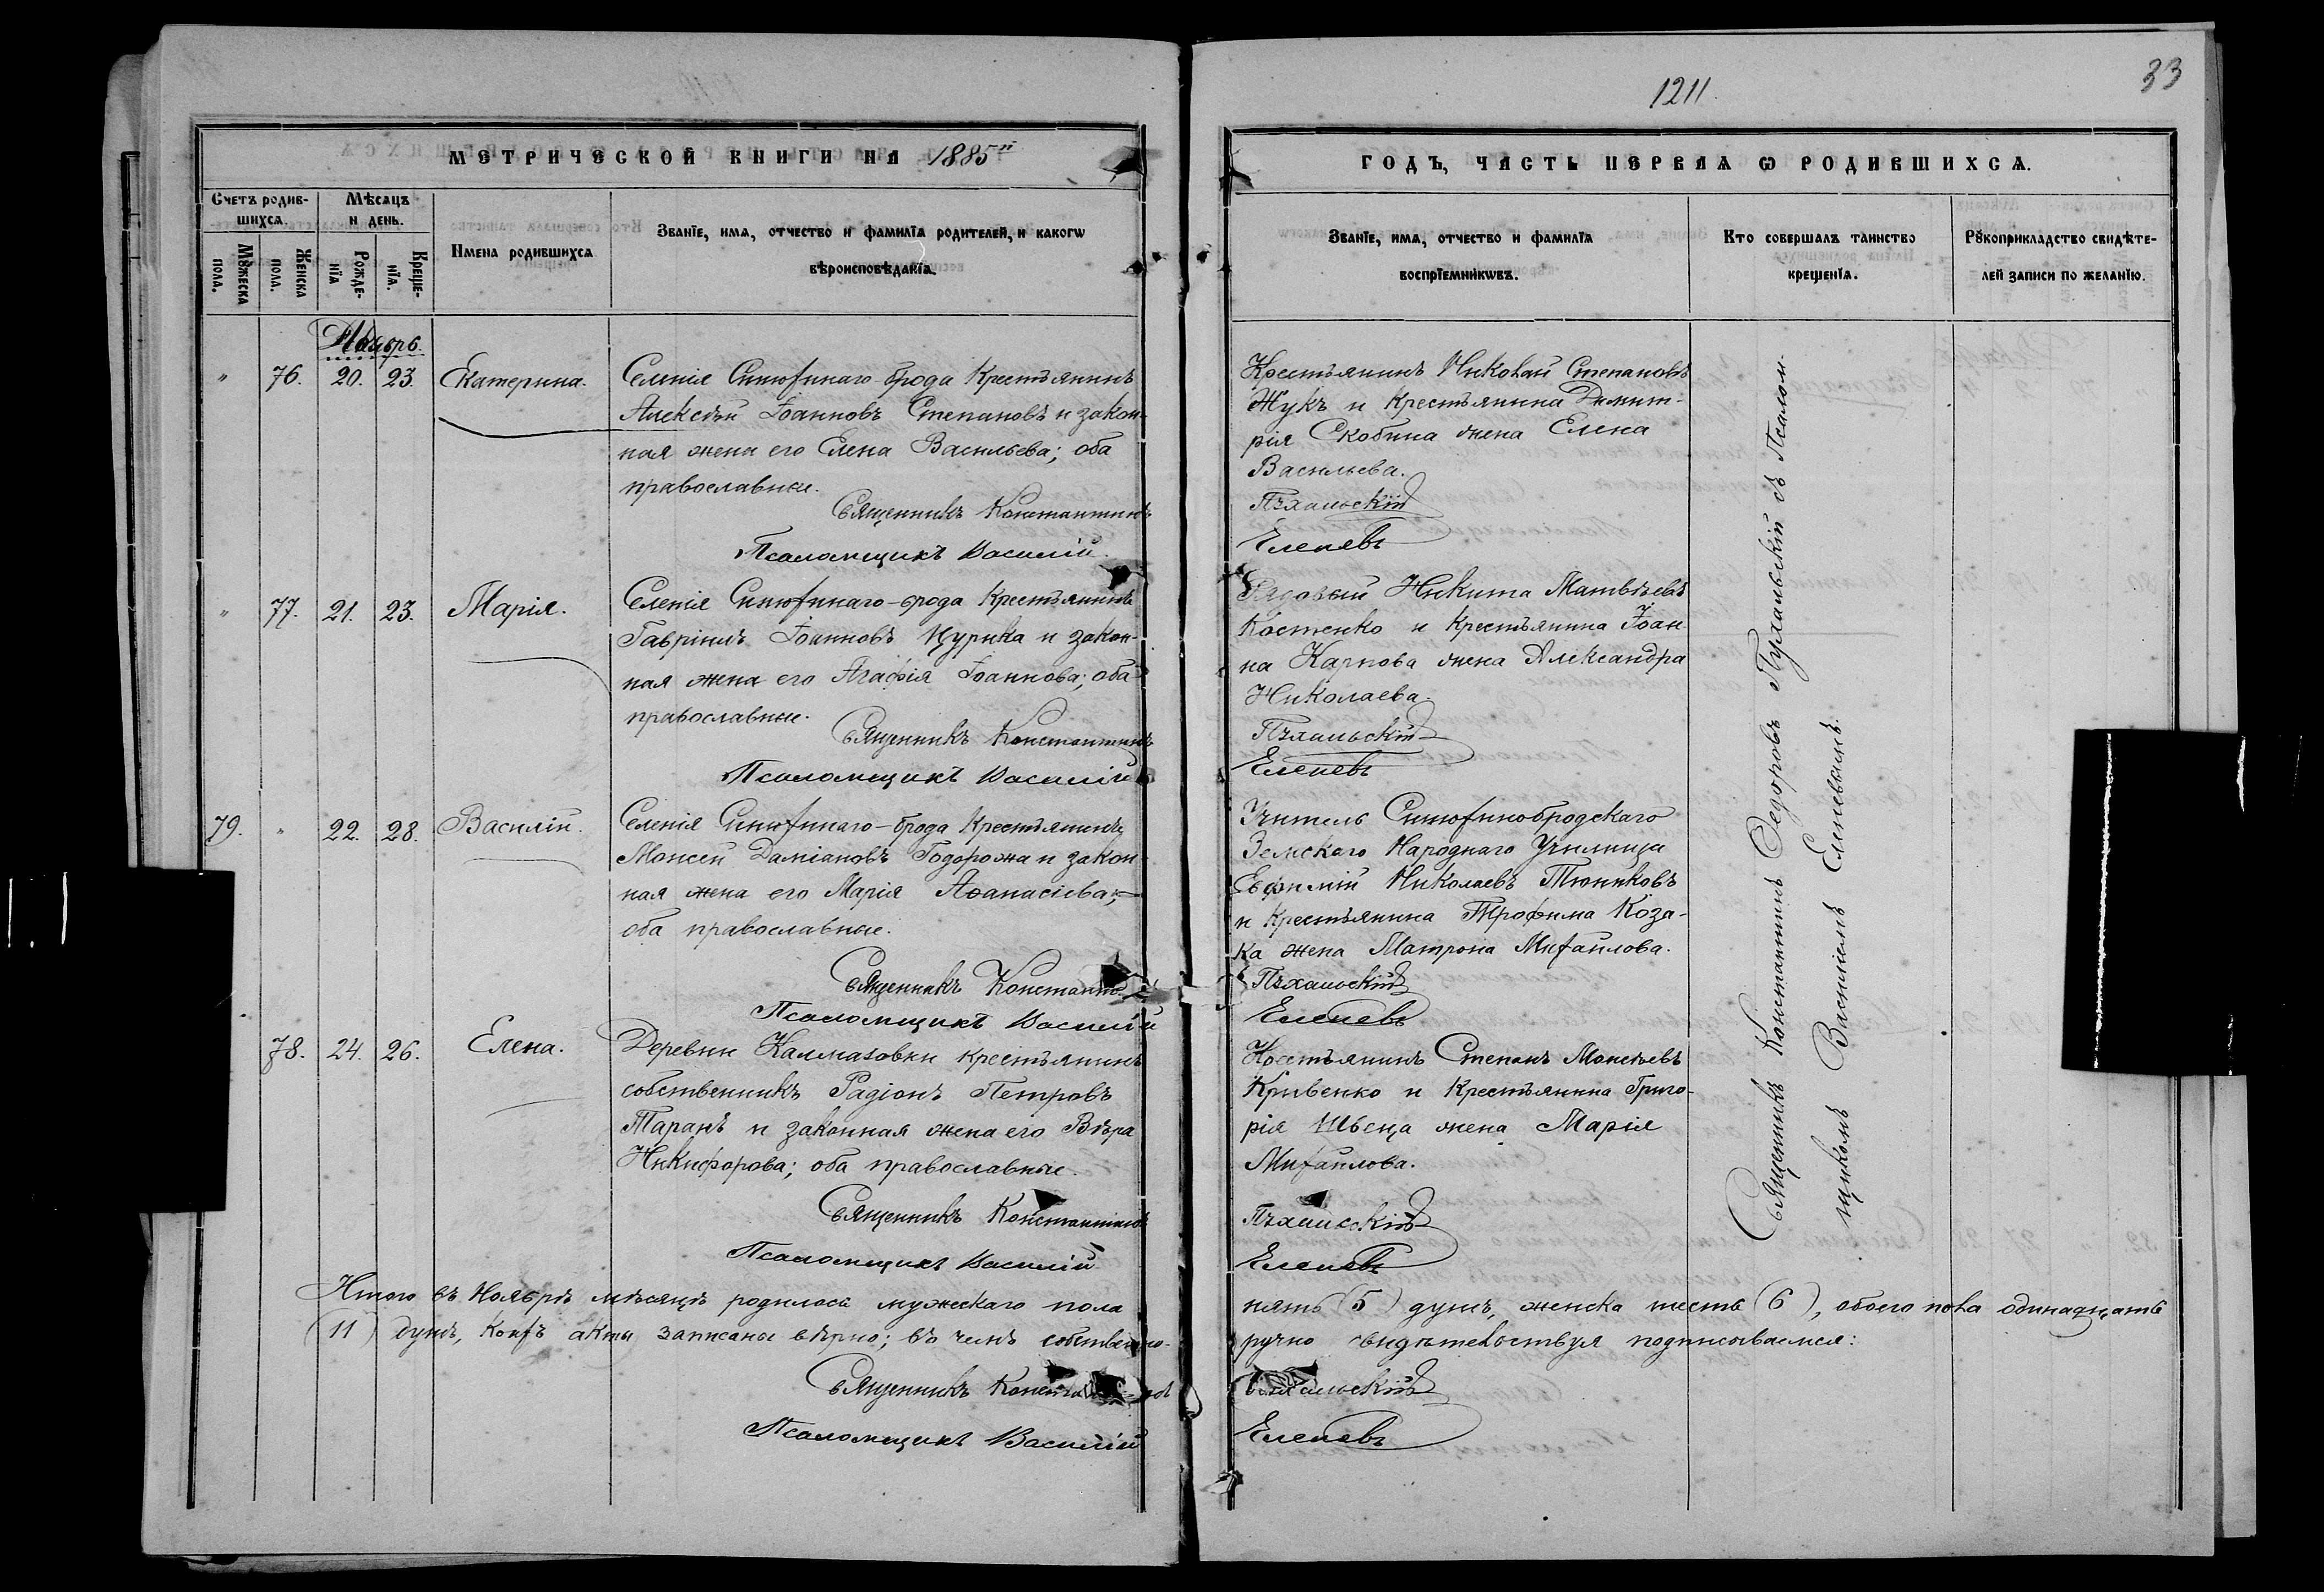 1211.
33
МЕТРИЧЕСКОЙ КНИГИ НА 1885й
ГОДЪ, ЧАСТЬ ПЕРВАЯ Ѡ РОДИВШИХСЯ.
Счетъ родив-
шихся.
Мѣсяцъ
и день.
Мꙋжеска
пола.
Женска
пола.
Рожде-
нїя
Креще-
нїя.
Имена родившихся
Званїе, имя, отчество и фамилїя родителей, и какогѡ
вѣроисповѣданїя.
Званїе, имя, отчество и фамилїя
воспрїемникѡвъ.
Кто совершалъ таинство
крещенїя.
Рꙋкоприкладство свидѣте-
лей записи по желанїю.
Ноябрь.
" 76. 20. 23. Екатерина.
Селенія Синюхинаго-брода Крестьянинъ
Алексѣй Іоанновъ Степановъ и закон-
ная жена его Елена Васильева; оба
православные.
Священникъ Константинъ
Псаломщикъ Василій
Крестьянинъ Николай Степановъ
Жукъ и крестьянина Димит-
рія Скобина жена Елена
Васильева.
Пухальскій
Еленевъ
" 77. 21. 23. Марія.
Селенія Синюхинаго-брода Крестьянинъ
Гавріилъ Іоанновъ Цурика и закон-
ная жена его Агафія Іоаннова; оба
православные.
Священникъ Константинъ
Псаломщикъ Василій
Рядовый Никита Матвѣевъ
Костенко и крестьянина Іоан
на Карпова жена Александра
Николаева.
Пухальскій
Еленевъ
79. " 22. 28. Василій.
Селенія Синюхинаго-брода Крестьянинъ
Моисей Даміановъ Подорожа и закон-
ная жена его Марія Аѳанасіева;
оба православные.
Священникъ Константинъ
Псаломщикъ Василій
Учитель Синюхинобродскаго
Земскаго Народнаго Училища
Евфимій Николаевъ Тюниковъ
и крестьянина Трофима Коза-
ка жена Матрона Михайлова.
Пухальскій
Еленевъ
78. 24. 26. Елена.
Деревни Калмазовки крестьянинъ
собственникъ Радіонъ Петровъ
Таранъ и законная жена его Вѣра
Никифорова; оба православные.
Священникъ Константинъ
Псаломщикъ Василій
Крестьянинъ Степанъ Моисеевъ
Кривенко и Крестьянина Григо-
рія Швеца жена Марія
Михайлова.
Пухальскій
Еленевъ
Священникъ Константинъ Ѳедоровъ Пухальскій съ Псалом.
щикомъ Василіемъ Еленевымъ.
Итого въ Ноябрѣ мѣсяцѣ родилось мужескаго пола
пять (5) душъ, женска шесть (6), обоего пола одинадцать
(11) душъ, коихъ акты записаны вѣрно; въ чемъ собственно-
ручно свидѣтельствуя подписываемся:
Священникъ Константинъ
Псаломщикъ Василій
Пухальскій
Еленевъ